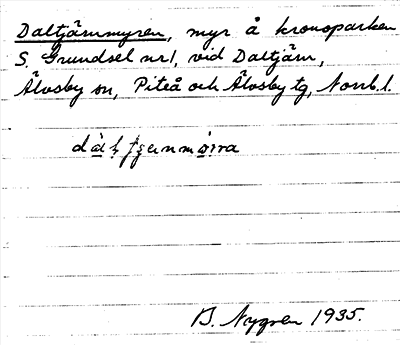 Daltjärnmyren, myr å kronoparken
S. Grundsel nr 1, vid Daltjärn,
Älvsby sn, Piteå och Älvsby tg, Norrb. l.
B. Nygren 1935.